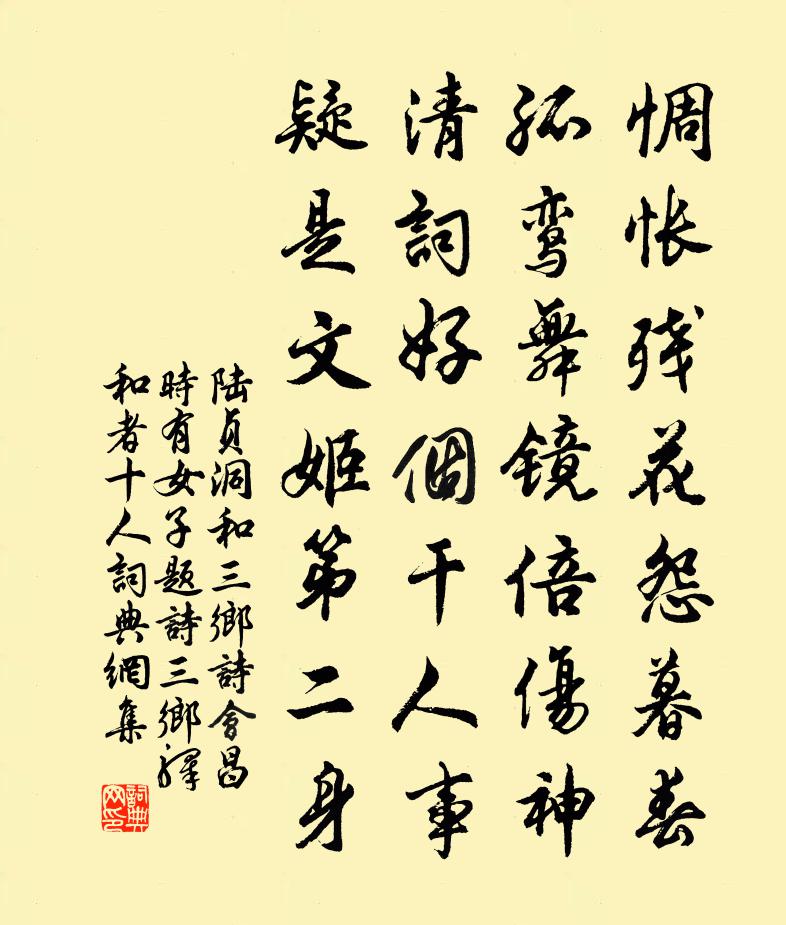 惆怅残花怨暮春
孤鸾舞镜倍傷神
清詞好個干人事
疑是文姬第二身
陆貞洞和三鄉詩會昌
時有女子题詩三鄉驛
和者十人詞典網集
詞典网印